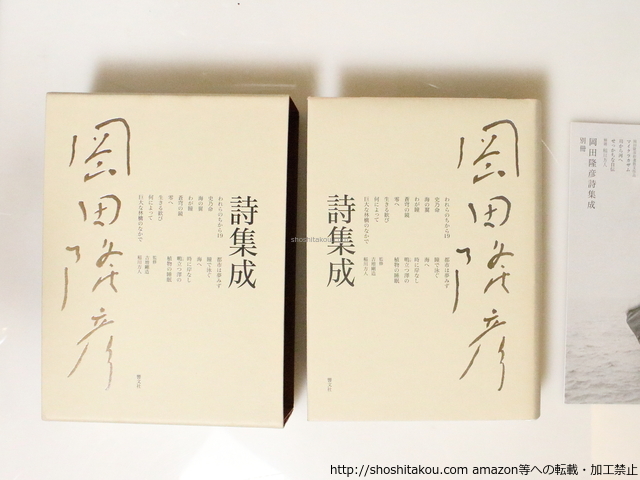 岡田隆彦
詩集成
われらのちから19
史乃命
海の翼
わが瞳
蒼穹の鏡
生きる歓び
何によって
零へ
巨大な林檎のなかで
都市は夢みず
闇で泳ぐ
海へ
時に岸なし
鴫立つ澤の
植物の睡眠
監修
吉増剛造
響文社
岡田隆彦
詩集成
われらのちから19
史乃命
海の翼
わが瞳
蒼穹の鏡
生きる歓び
何によって
零へ
巨大な林檎のなかで
都市は夢みず
闇で泳ぐ
海へ
時に岸なし
鴫立つ澤の
植物の睡眠
監修
吉増剛造
響文社
岡田隆彦詩集成
別冊
shoshitakou.com
http://shoshitakou.com amazon等への転載・加工禁止